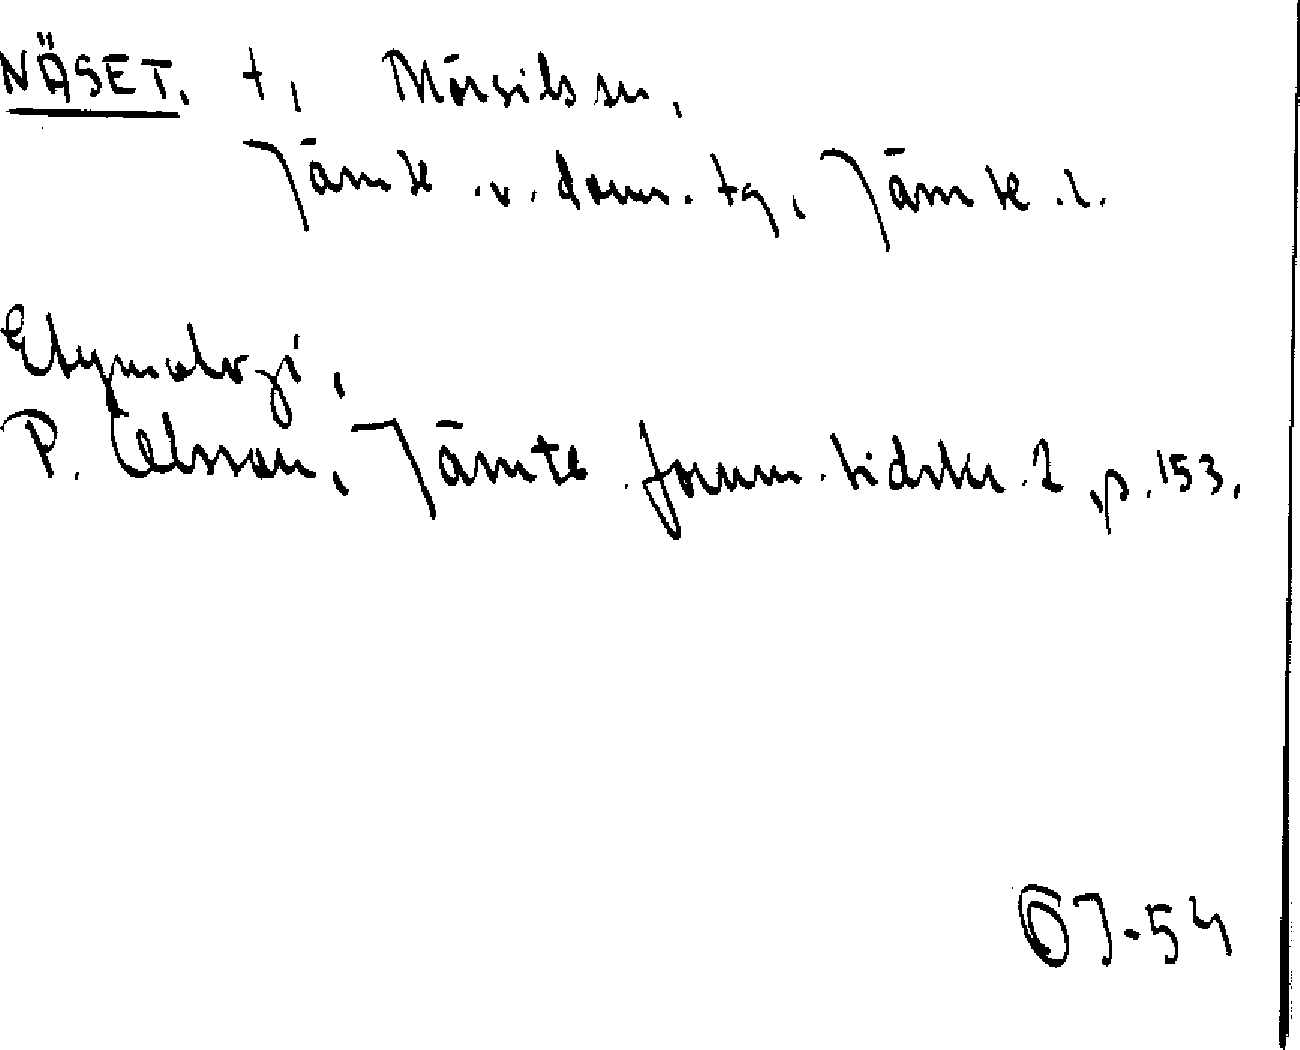 NÄSET. t, Mörsils sn,
Jämtl. v. doms. tg, Jämtl. l.
Etymologi,
P. Olsson, Jämtl. fornm. tidskr. 2, p. 153.
OJ-54